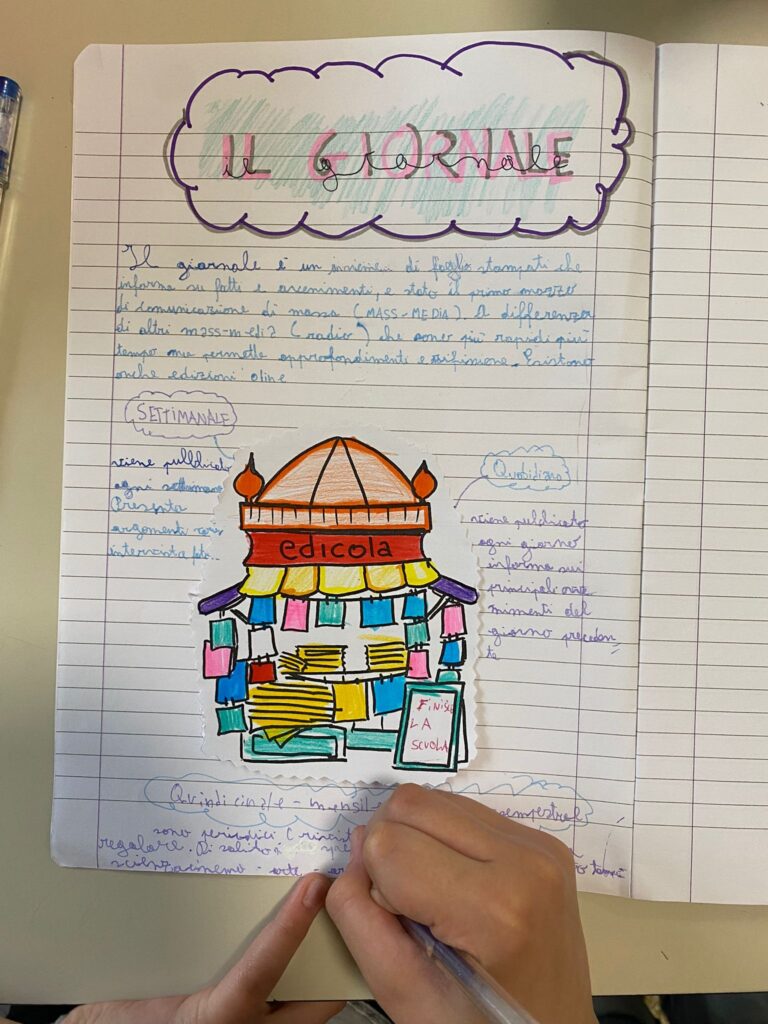 IL GIORNALE
il giornale
Il giornale è un insieme di foglio stampati che
informa su fatti e avvenimenti, e stato il primo mezzo
di comunicazione di massa (MASS-MEDIA). A differenza
di altri mass-media (radio) che sono più rapidi più
tempo ma permette approfondimenti e riflessione. Esistono
anche edizioni oline
SETTIMANALE
viene pubblicato
ogni settimana
Presenta
argomenti vari
interviste foto..
Quotidiano
viene pubblicato
ogni giorno
informa sui
principali avve
nimenti del
giorno preceden
te
edicola
FINISCE
LA
SCUOLA
Quindicinale - mensile semestral
sono periodici
regolare. Di solito
scienza cinema - arte -